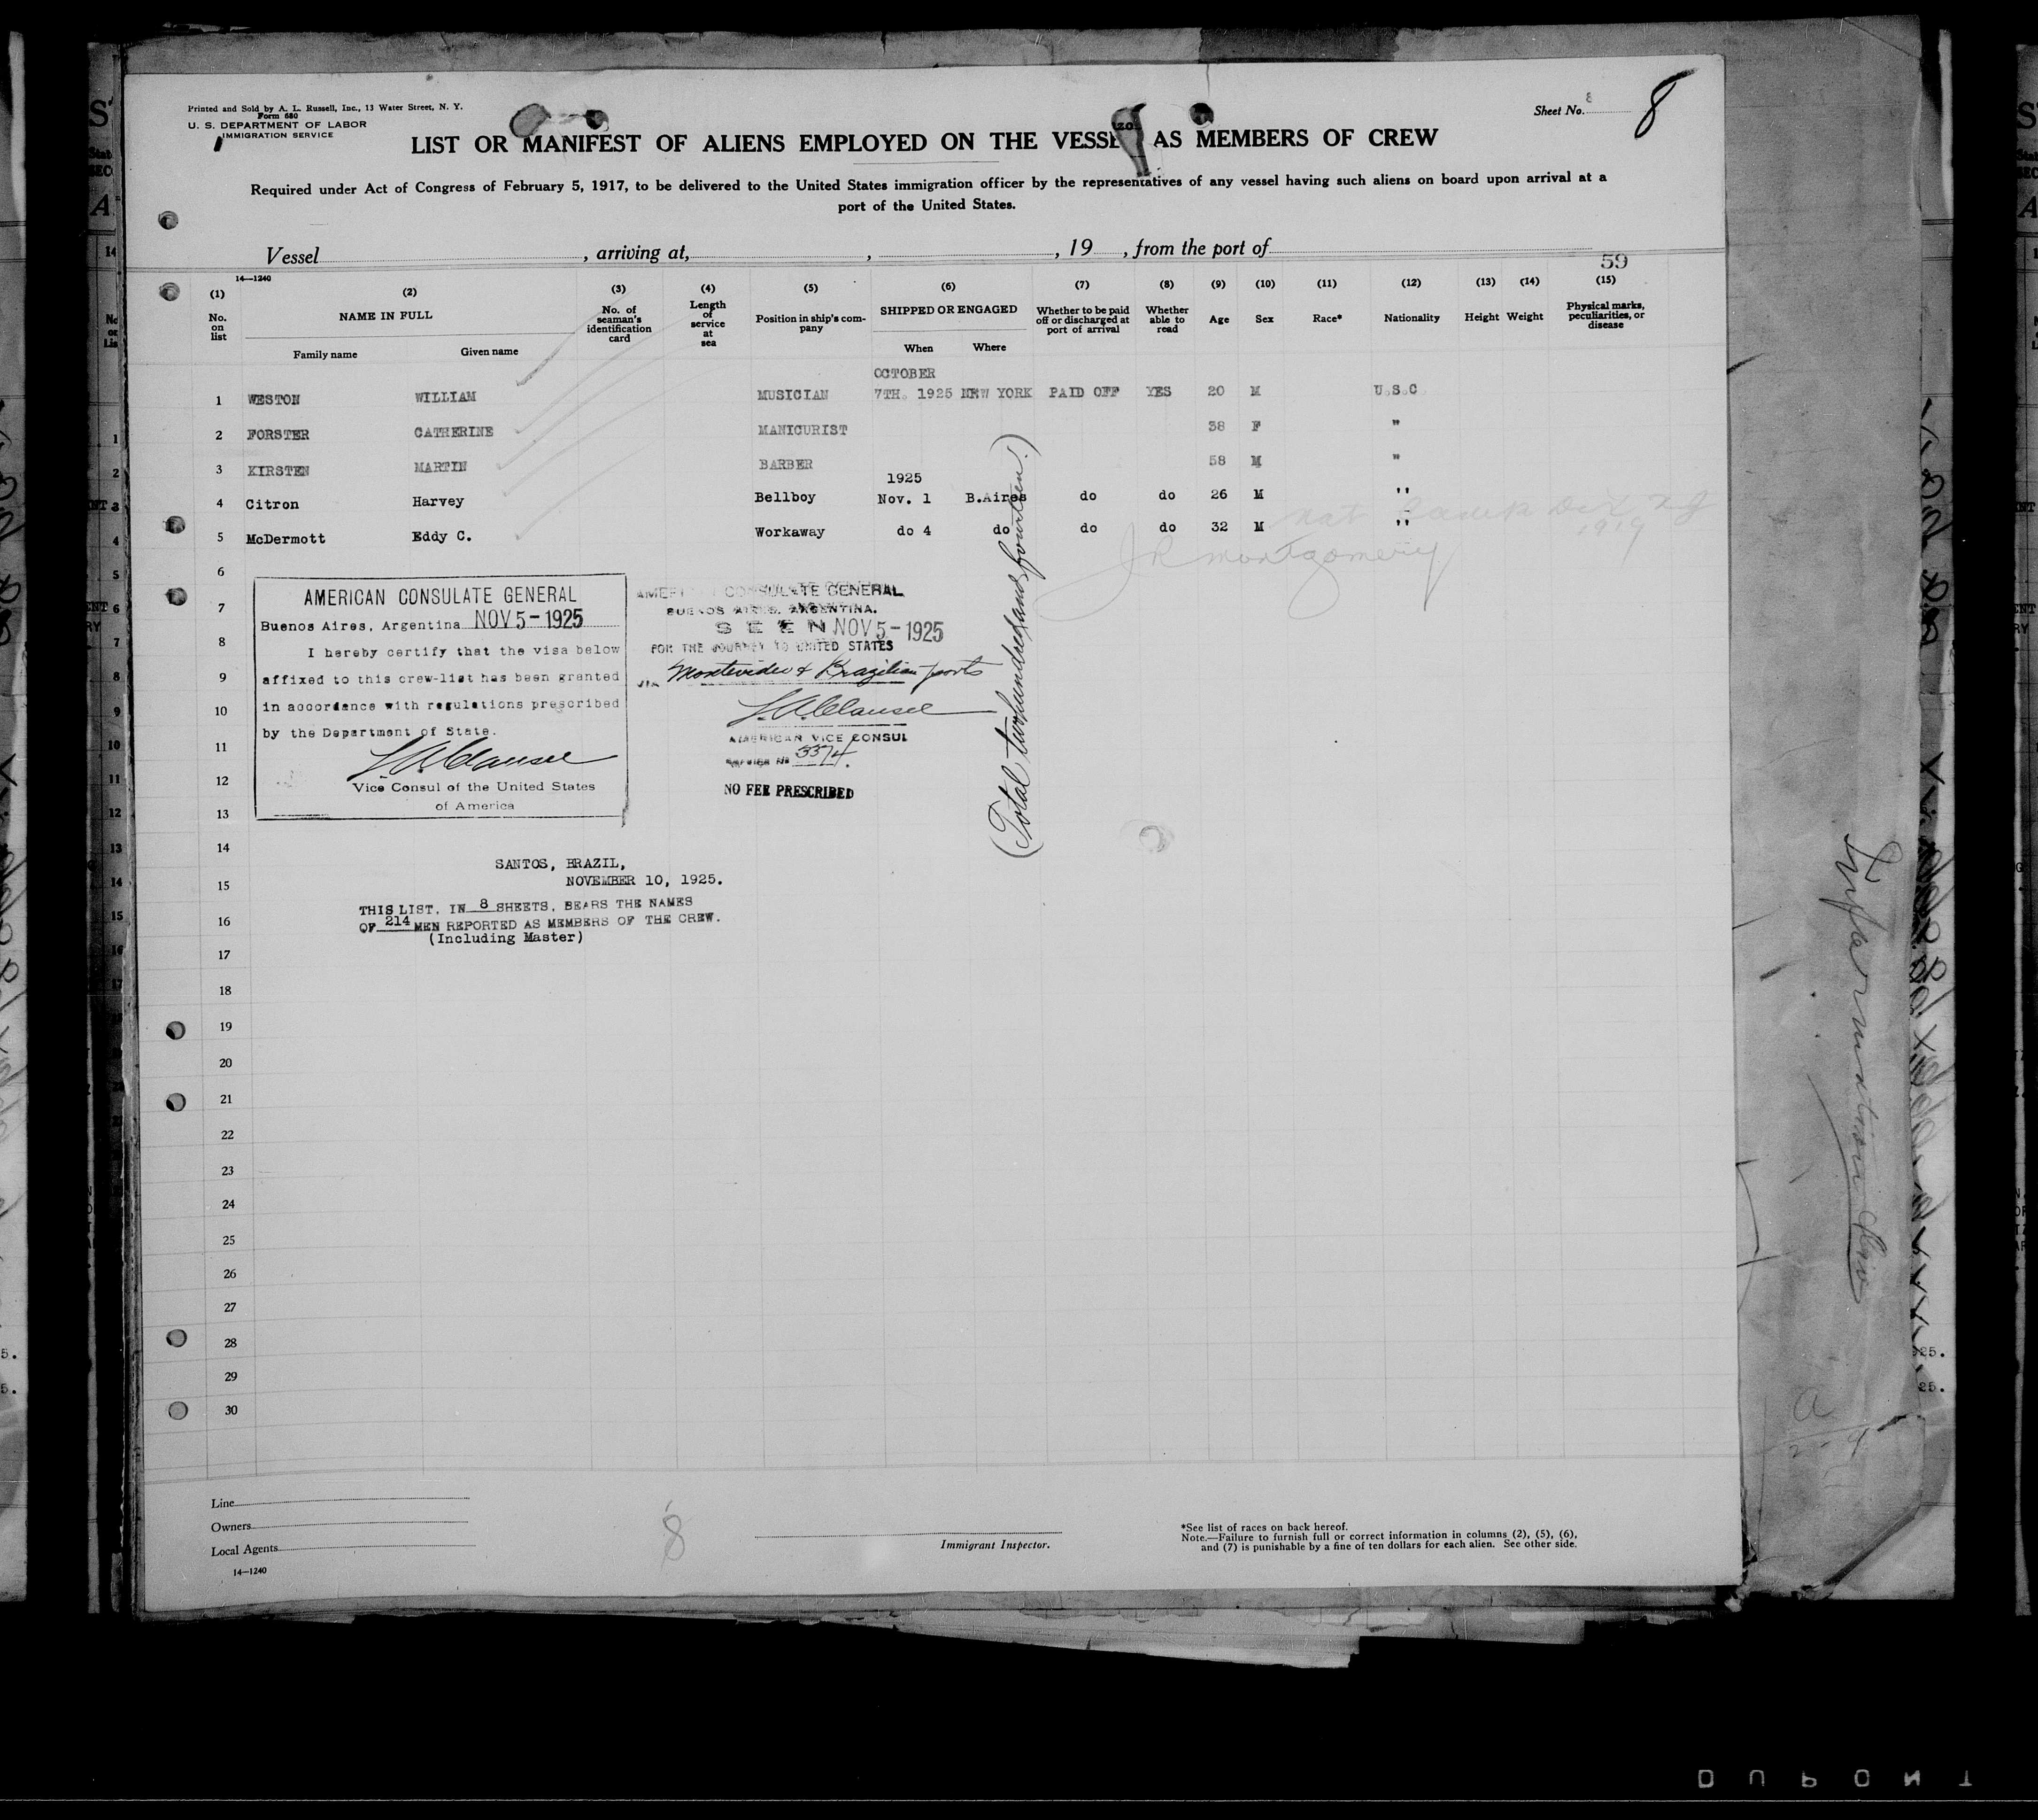 Printed and Sold by A. L. Russell, Inc., 13 Water Street, N. Y.
Form 680
U. S. DEPARTMENT OF LABOR
IMMIGRATION SERVICE
Sheet No. 8
8
LIST OR MANIFEST OF ALIENS EMPLOYED ON THE VESSEL AS MEMBERS OF CREW
Required under Act of Congress of February 5, 1917, to be delivered to the United States immigration officer by the representatives of any vessel having such aliens on board upon arrival at a
port of the United States.
Vessel , arriving at, , , 19 , from the port of
59
14—1240
(1) No. on list
(2) NAME IN FULL
Family name Given name
(3) No. of seaman's identification card
(4) Length of service at sea
(5) Position in ship's company
(6) SHIPPED OR ENGAGED
When Where
(7) Whether to be paid off or discharged at port of arrival
(8) Whether able to read
(9) Age
(10) Sex
(11) Race*
(12) Nationality
(13) Height
(14) Weight
(15) Physical marks, peculiarities, or disease
OCTOBER
1 WESTON WILLIAM MUSICIAN 7TH. 1925 NEW YORK PAID OFF YES 20 M U.S.C
2 FORSTER CATHERINE MANICURIST 38 F "
3 KIRSTEN MARTIN BARBER 58 M "
1925
4 Citron Harvey Bellboy Nov. 1 B.Aires do do 26 M "
5 McDermott Eddy C. Workaway do 4 do do do 32 M "
1919
J R Montgomery
6
7
8
9
10
11
12
13
14
15
16
17
18
19
20
21
22
23
24
25
26
27
28
29
30
AMERICAN CONSULATE GENERAL
Buenos Aires, Argentina NOV 5-1925
I hereby certify that the visa below
affixed to this crew-list has been granted
in accordance with regulations prescribed
by the Department of State.
Vice Consul of the United States
of America
AMERICAN CONSULATE GENERAL
BUENOS AIRES, ARGENTINA.
SEEN NOV 5-1925
FOR THE JOURNEY TO UNITED STATES
VIA Montevideo & Brazilian ports
AMERICAN VICE CONSUL
SERVICE No 3374.
NO FEE PRESCRIBED
(Total two hundred and fourteen.)
SANTOS, BRAZIL,
NOVEMBER 10, 1925.
THIS LIST, IN 8 SHEETS, BEARS THE NAMES
OF 214 MEN REPORTED AS MEMBERS OF THE CREW.
(Including Master)
Line
Owners
Local Agents
14—1240
8
Immigrant Inspector.
*See list of races on back hereof.
Note.—Failure to furnish full or correct information in columns (2), (5), (6),
and (7) is punishable by a fine of ten dollars for each alien. See other side.
Information
DUPONT